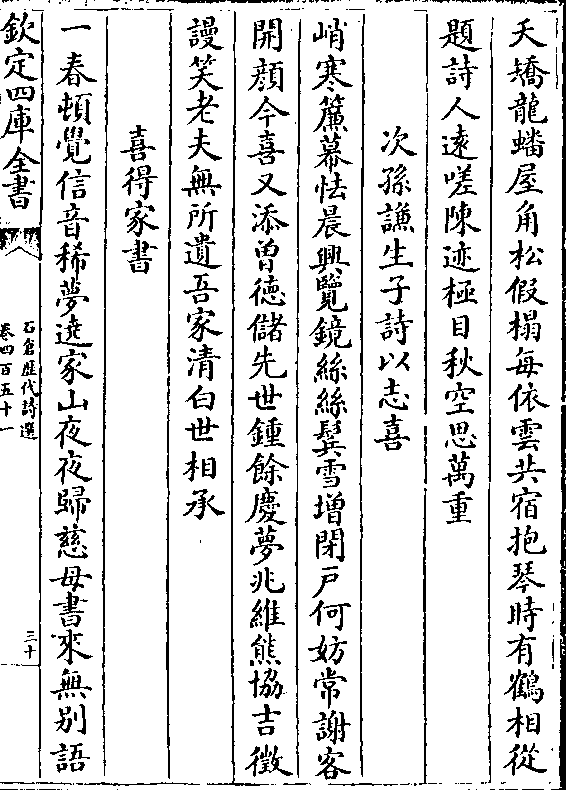 夭矯龍蟠屋角松假榻每依雲共宿抱琴時有鶴相從
題詩人遠嗟陳迹極目秋空思萬重
次孫謙生子詩以志喜
峭寒簾幕怯晨興覽鏡絲絲鬂雪增閉戸何妨常謝客
開顔今喜又添曽徳儲先世鍾餘慶夢兆維熊協吉徵
謾笑老夫無所遺吾家清白世相承
喜得家書
一春頓覺信音稀夢遶家山夜夜歸慈母書來無别語
欽定四庫全書
石倉歴代詩選
卷四百五十一
三十